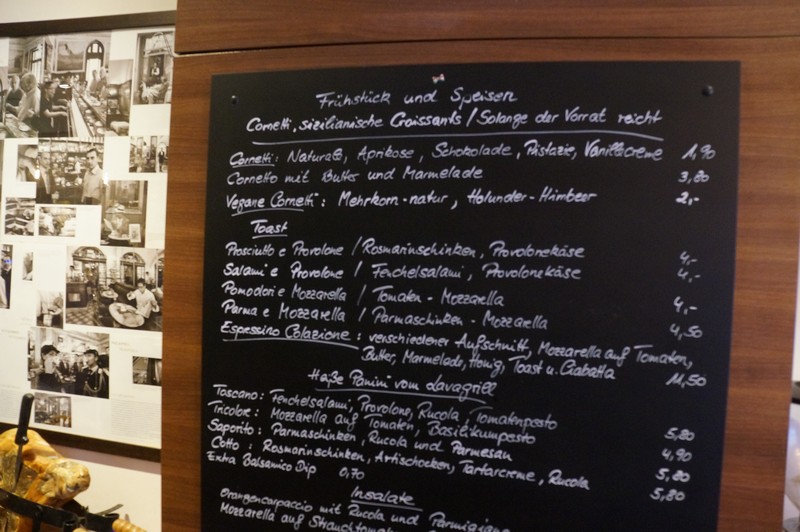 Frühstück und Speisen
Cornetti, sizilianische Croissants / Solange der Vorrat reicht
Cornetti: Naturale, Aprikose, Schokolade, Pistazie, Vanillecreme 1,90
Cornetto mit Butter und Marmelade 3,80
Vegane Cornetti: Mehrkorn-natur, Holunder-Himbeer 2,-
Toast
Prosciutto e Provolone / Rosmarinschinken, Provolonekäse 4,-
Salami e Provolone / Fenchelsalami, Provolonekäse 4,-
Pomodori e Mozzarella / Tomaten - Mozzarella 4,-
Parma e Mozzarella / Parmaschinken - Mozzarella 4,50
Espressino Colazione: verschiedener Aufschnitt, Mozzarella auf Tomaten,
Butter, Marmelade, Honig, Toast u. Ciabatta 11,50
Haße Panini vom Lavagrill
Toscano: Fenchelsalami, Provolone, Rucola, Tomatenpesto 5,80
Tricolore: Mozzarella auf Tomaten, Basilikumpesto 4,90
Saporito: Parmaschinken, Rucola und Parmesan 5,80
Cotto: Rosmarinschinken, Artischocken, Tartarcreme, Rucola 5,80
Extra Balsamico Dip 0,70
Insalate
Orangencarpaccio mit Rucola und Parmigiano
Mozzarella auf